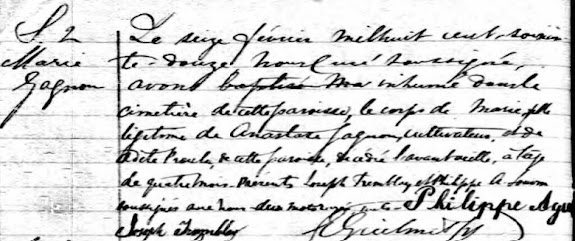 S. 2
Marie
Gagnon
Le seize février mil huit cent soixan-
te-douze Nous Curé soussigné,
avons baptisé inhumé dans le
cimetière de cette paroisse, le corps de Marie, fille
légitime de Anastase Gagnon, cultivateur, et de
de cette paroisse, décédée l'avant veille, à l'age
de quatre mois. Présents Joseph Tremblay et Philippe
soussignés avec nous Philippe
Joseph Tremblay